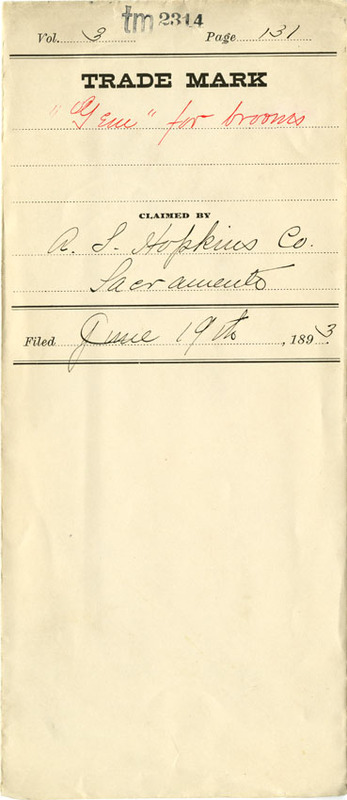 tm 2314
Vol. 3 Page 131
TRADE MARK
"Gem" for brooms
CLAIMED BY
A. S. Hopkins Co.
Sacramento
Filed June 19th, 1893.